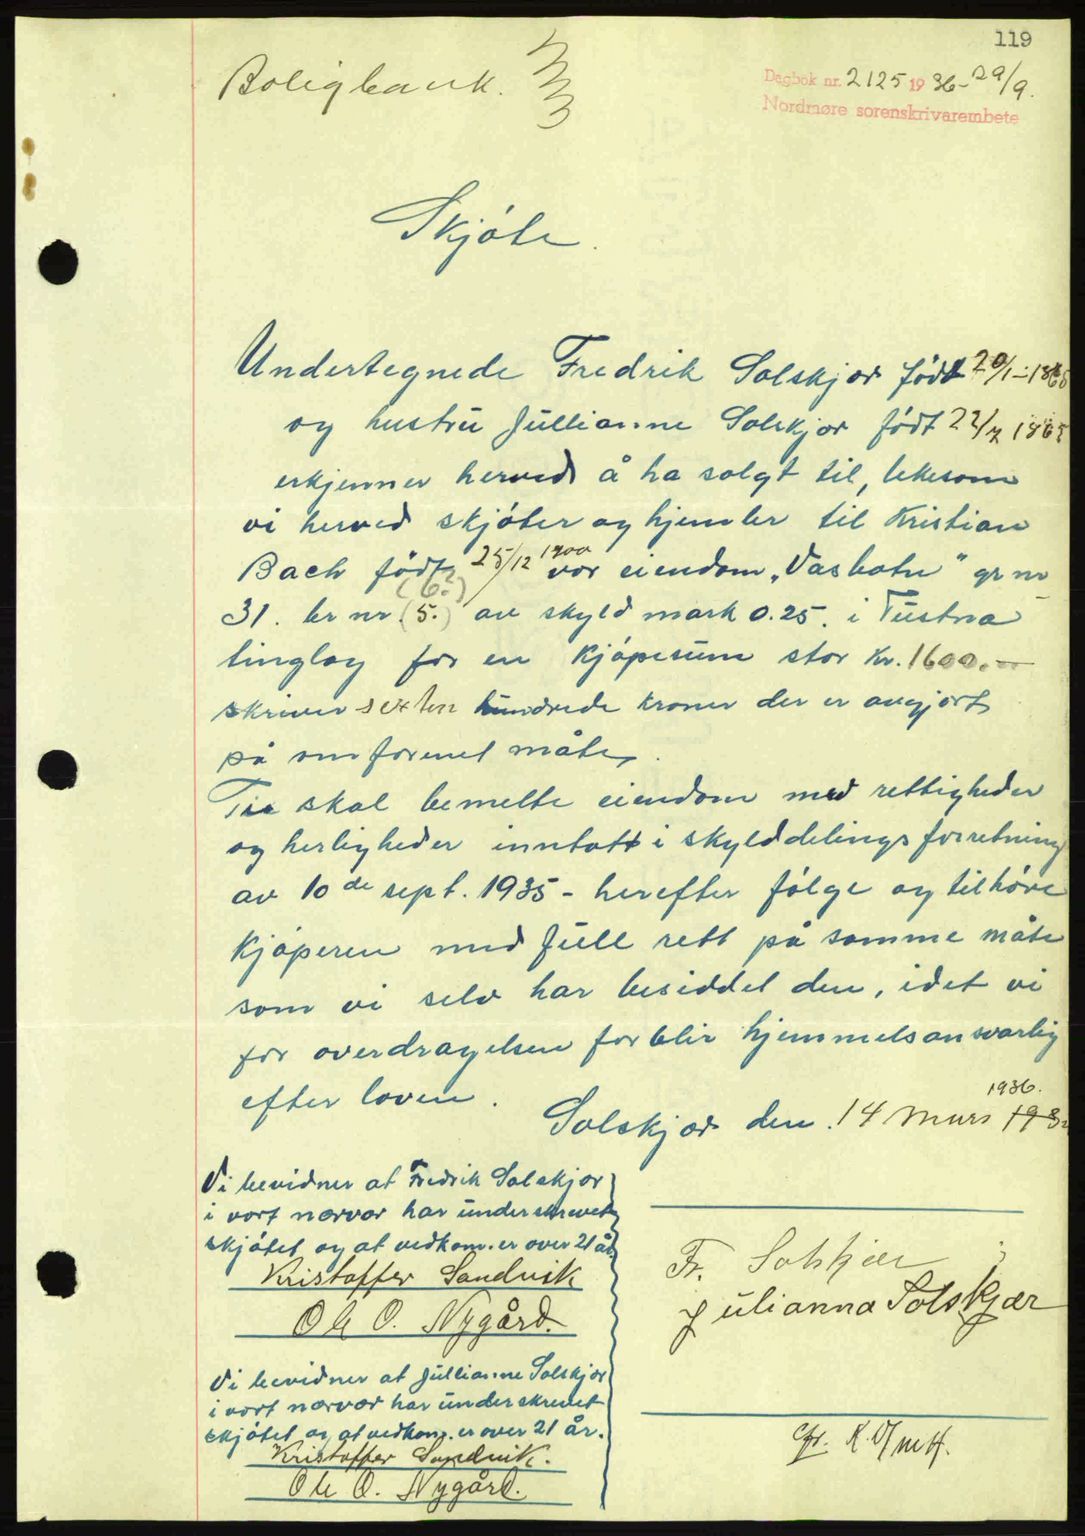 119
Boligbank.
Dagbok nr. 2125 1936 - 29/9.
Nordmøre sorenskrivarembete
Skjøte.
Undertegnede Fredrik Solskjær født 20/1-1868
og hustru Jullianne Solskjær født 22/7 1865
erkjenner herved å ha solgt til, likesom
vi herved skjøter og hjemler til Kristian
Bach født 25/12 1900 vor eiendom „Vasbotn" gr nr
31. br nr. (5.) (6?) av skyld mark 0.25. i Tustna
tinglag for en kjøpesum stor kr. 1600.—
skriver sexten hundrede kroner der er avgjort
på omforenet måte.
Ti skal bemelte eiendom med rettigheder
og herligheder inntatt i skylddelings forretning
av 10de sept. 1935 - herefter følge og tilhøre
kjøperen med full rett på samme måte
som vi selv har besiddet den, idet vi
for overdragelsen forblir hjemmelsansvarlig
efter loven.
Solskjær den 14 Mars 1936.
Vi bevidner at Fredrik Solskjær
i vort nærvær har underskrevet
skjøtet og at vedkom. er over 21 år.
Kristoffer Sandvik
Ole O. Nygård.
Fr. Solskjær
Julianna Solskjær
Vi bevidner at Jullianne Solskjær
i vort nærvær har underskrevet
skjøtet og at vedkom. er over 21 år.
Kristoffer Sandvik.
Ole O. Nygård.